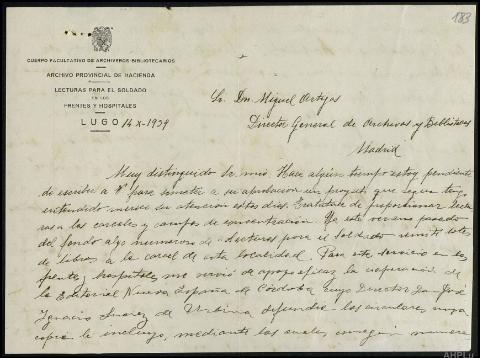 183
CUERPO FACULTATIVO DE ARCHIVEROS-BIBLIOTECARIOS
ARCHIVO PROVINCIAL DE HACIENDA
LECTURAS PARA EL SOLDADO
EN LOS
FRENTES Y HOSPITALES
LUGO 14-X-1939
Sr. Dn. Miguel Artigas
Director General de Archivos y Bibliotecas
Madrid
Muy distinguido Sr. mio: Hace algún tiempo estoy pendiente
de escribir a Vd. para someter a su aprobación un proyecto que según tengo
entendido merece su atención estos días. Tratase de proporcionar lectu
ras a las carceles y campos de concentración. Ya este verano pasado
del fondo algo numeroso de Lecturas para el Soldado remití lotes
de libros a la carcel de esta localidad. Para este servicio en los
frentes y hospitales me sirvió de apoyo eficaz la cooperación de
la Editorial Nueva España de Córdoba cuyo Director Don José
Ignacio Suarez de Urbina difundió las circulares cuya
copia le incluyo, mediante las cuales conseguí numero
AHPLu